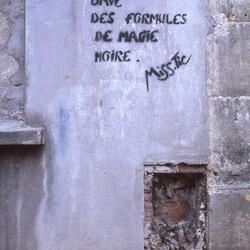 DES FORMULES
DE MAGIE
NOIRE.
Miss.Tic